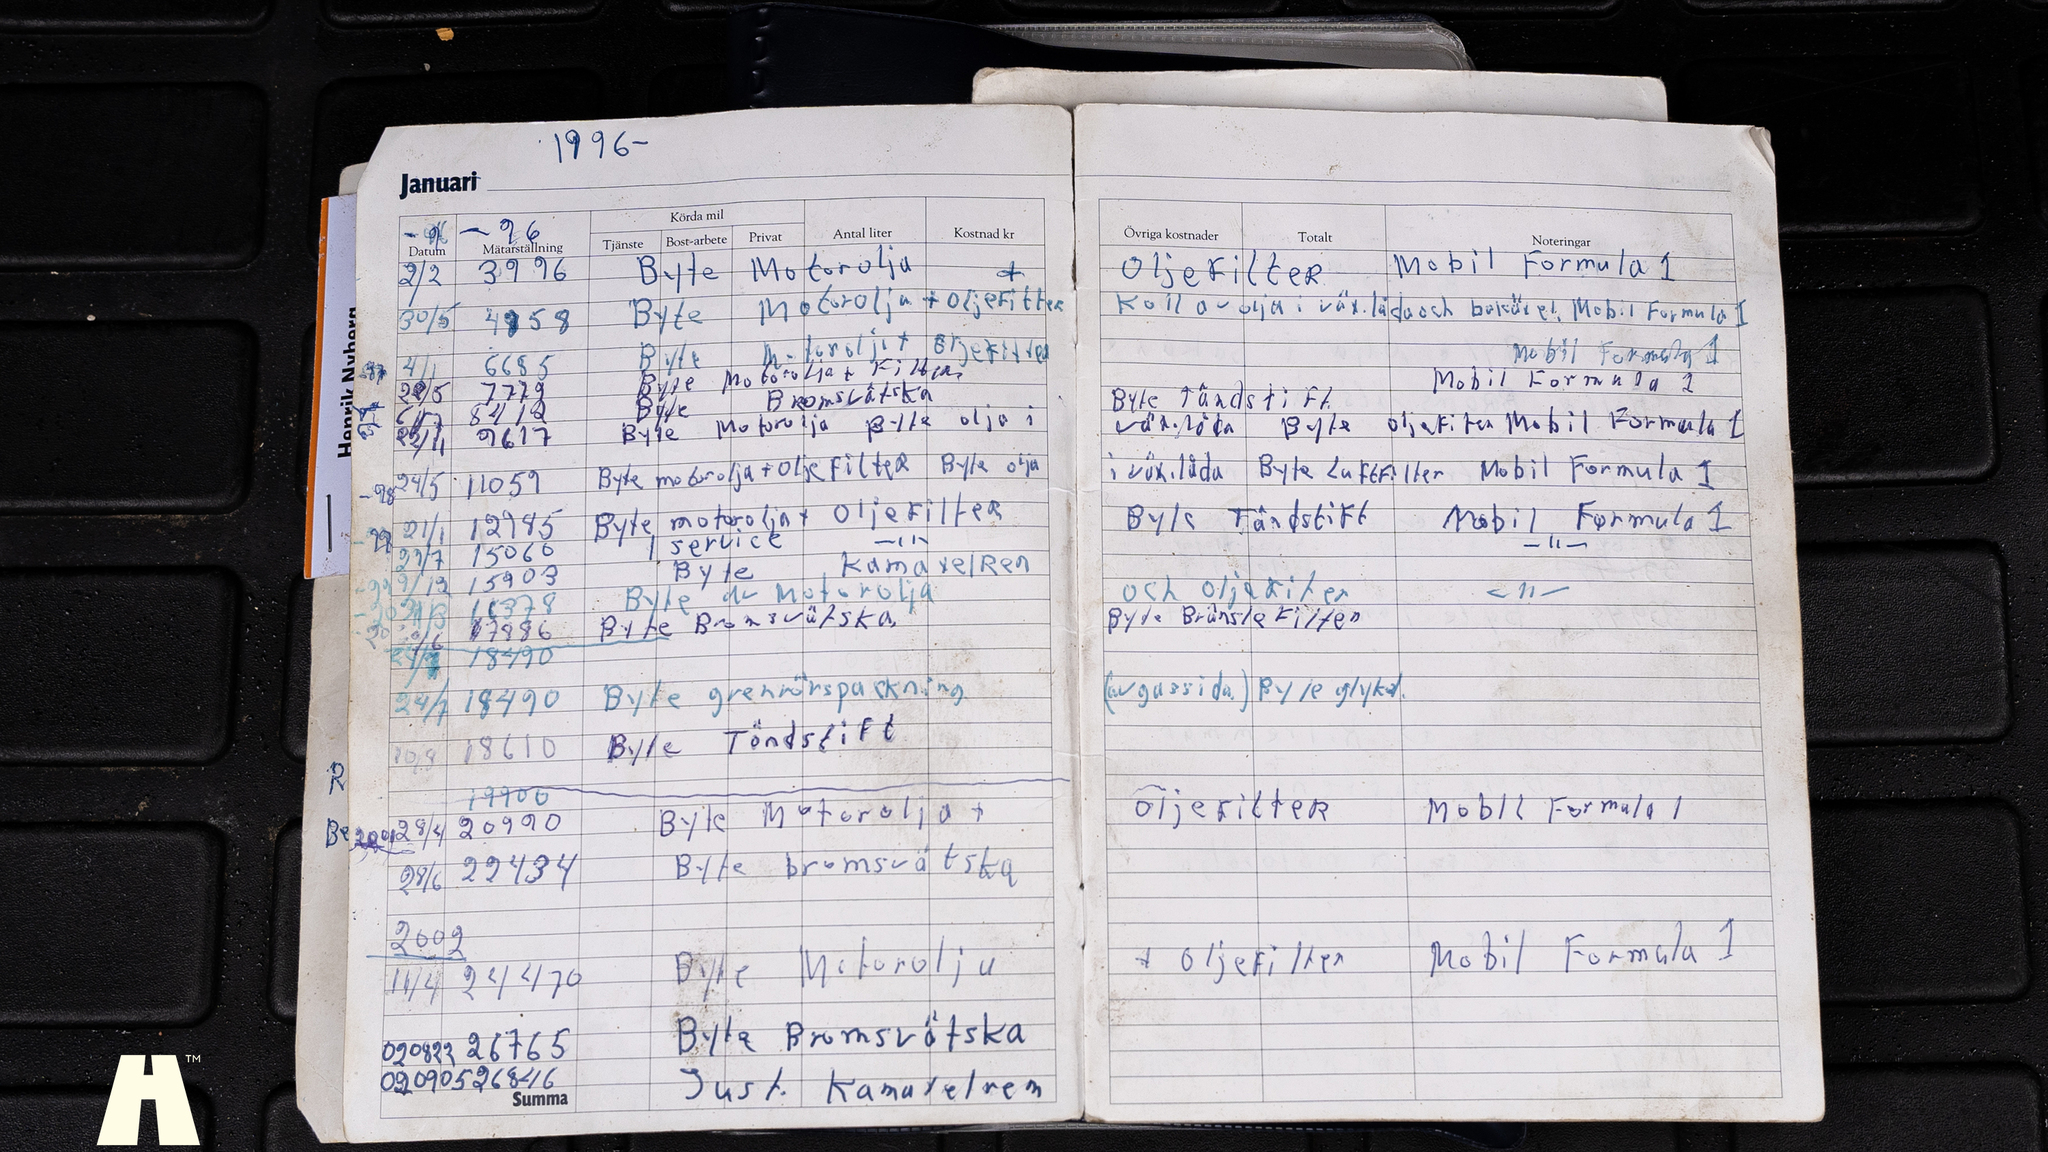 1996-
Januari
-96
Körda mil
Datum Mätarställning Tjänste Bost-arbete Privat Antal liter Kostnad kr Övriga kostnader Totalt Noteringar
2/2 3996 Byte Motorolja + Oljefilter Mobil Formula 1
30/5 4958 Byte Motorolja + Oljefilter Koll av olja i väx.låda och bakaxel. Mobil Formula 1
4/1 6685 Byte Motorolj+ Oljefilter Mobil Formula 1
-97 22/5 7779 Byte Motorolja+ Filter Mobil Formula 1
6/7 8412 Byte Bromsvätska Byte Tändstift
22/11 9617 Byte Motorolja Byte olja i växlåda Byte oljefilter Mobil Formula 1
-98 24/5 11059 Byte motorolja + Oljefilter Byte olja i växlåda Byte Luftfilter Mobil Formula 1
-99 21/1 12785 Byte motorolja+ Oljefilter Byte Tändstift Mobil Formula 1
27/7 15066 service -"- -"-
-99 9/12 15903 Byte Kamaxelrem
16378 Byte av Motorolja och Oljefilter -"-
17886 Byte Bromsvätska. Byte Bränslefilter
18490
24/7 18490 Byte grenrörspackning (avgassida.) Byte glykol.
10/8 18610 Byte Tändstift
R
19900
Be 2001 28/4 20990 Byte Motorolja + Oljefilter Mobil Formula 1
28/6 22434 Byte bromsvätska
2002
11/4 24470 Byte Motorolja + Oljefilter Mobil Formula 1
020822 26765 Byte Bromsvätska
020905 26846 Just. Kamaxelrem
Summa
Henrik Nyberg
H™